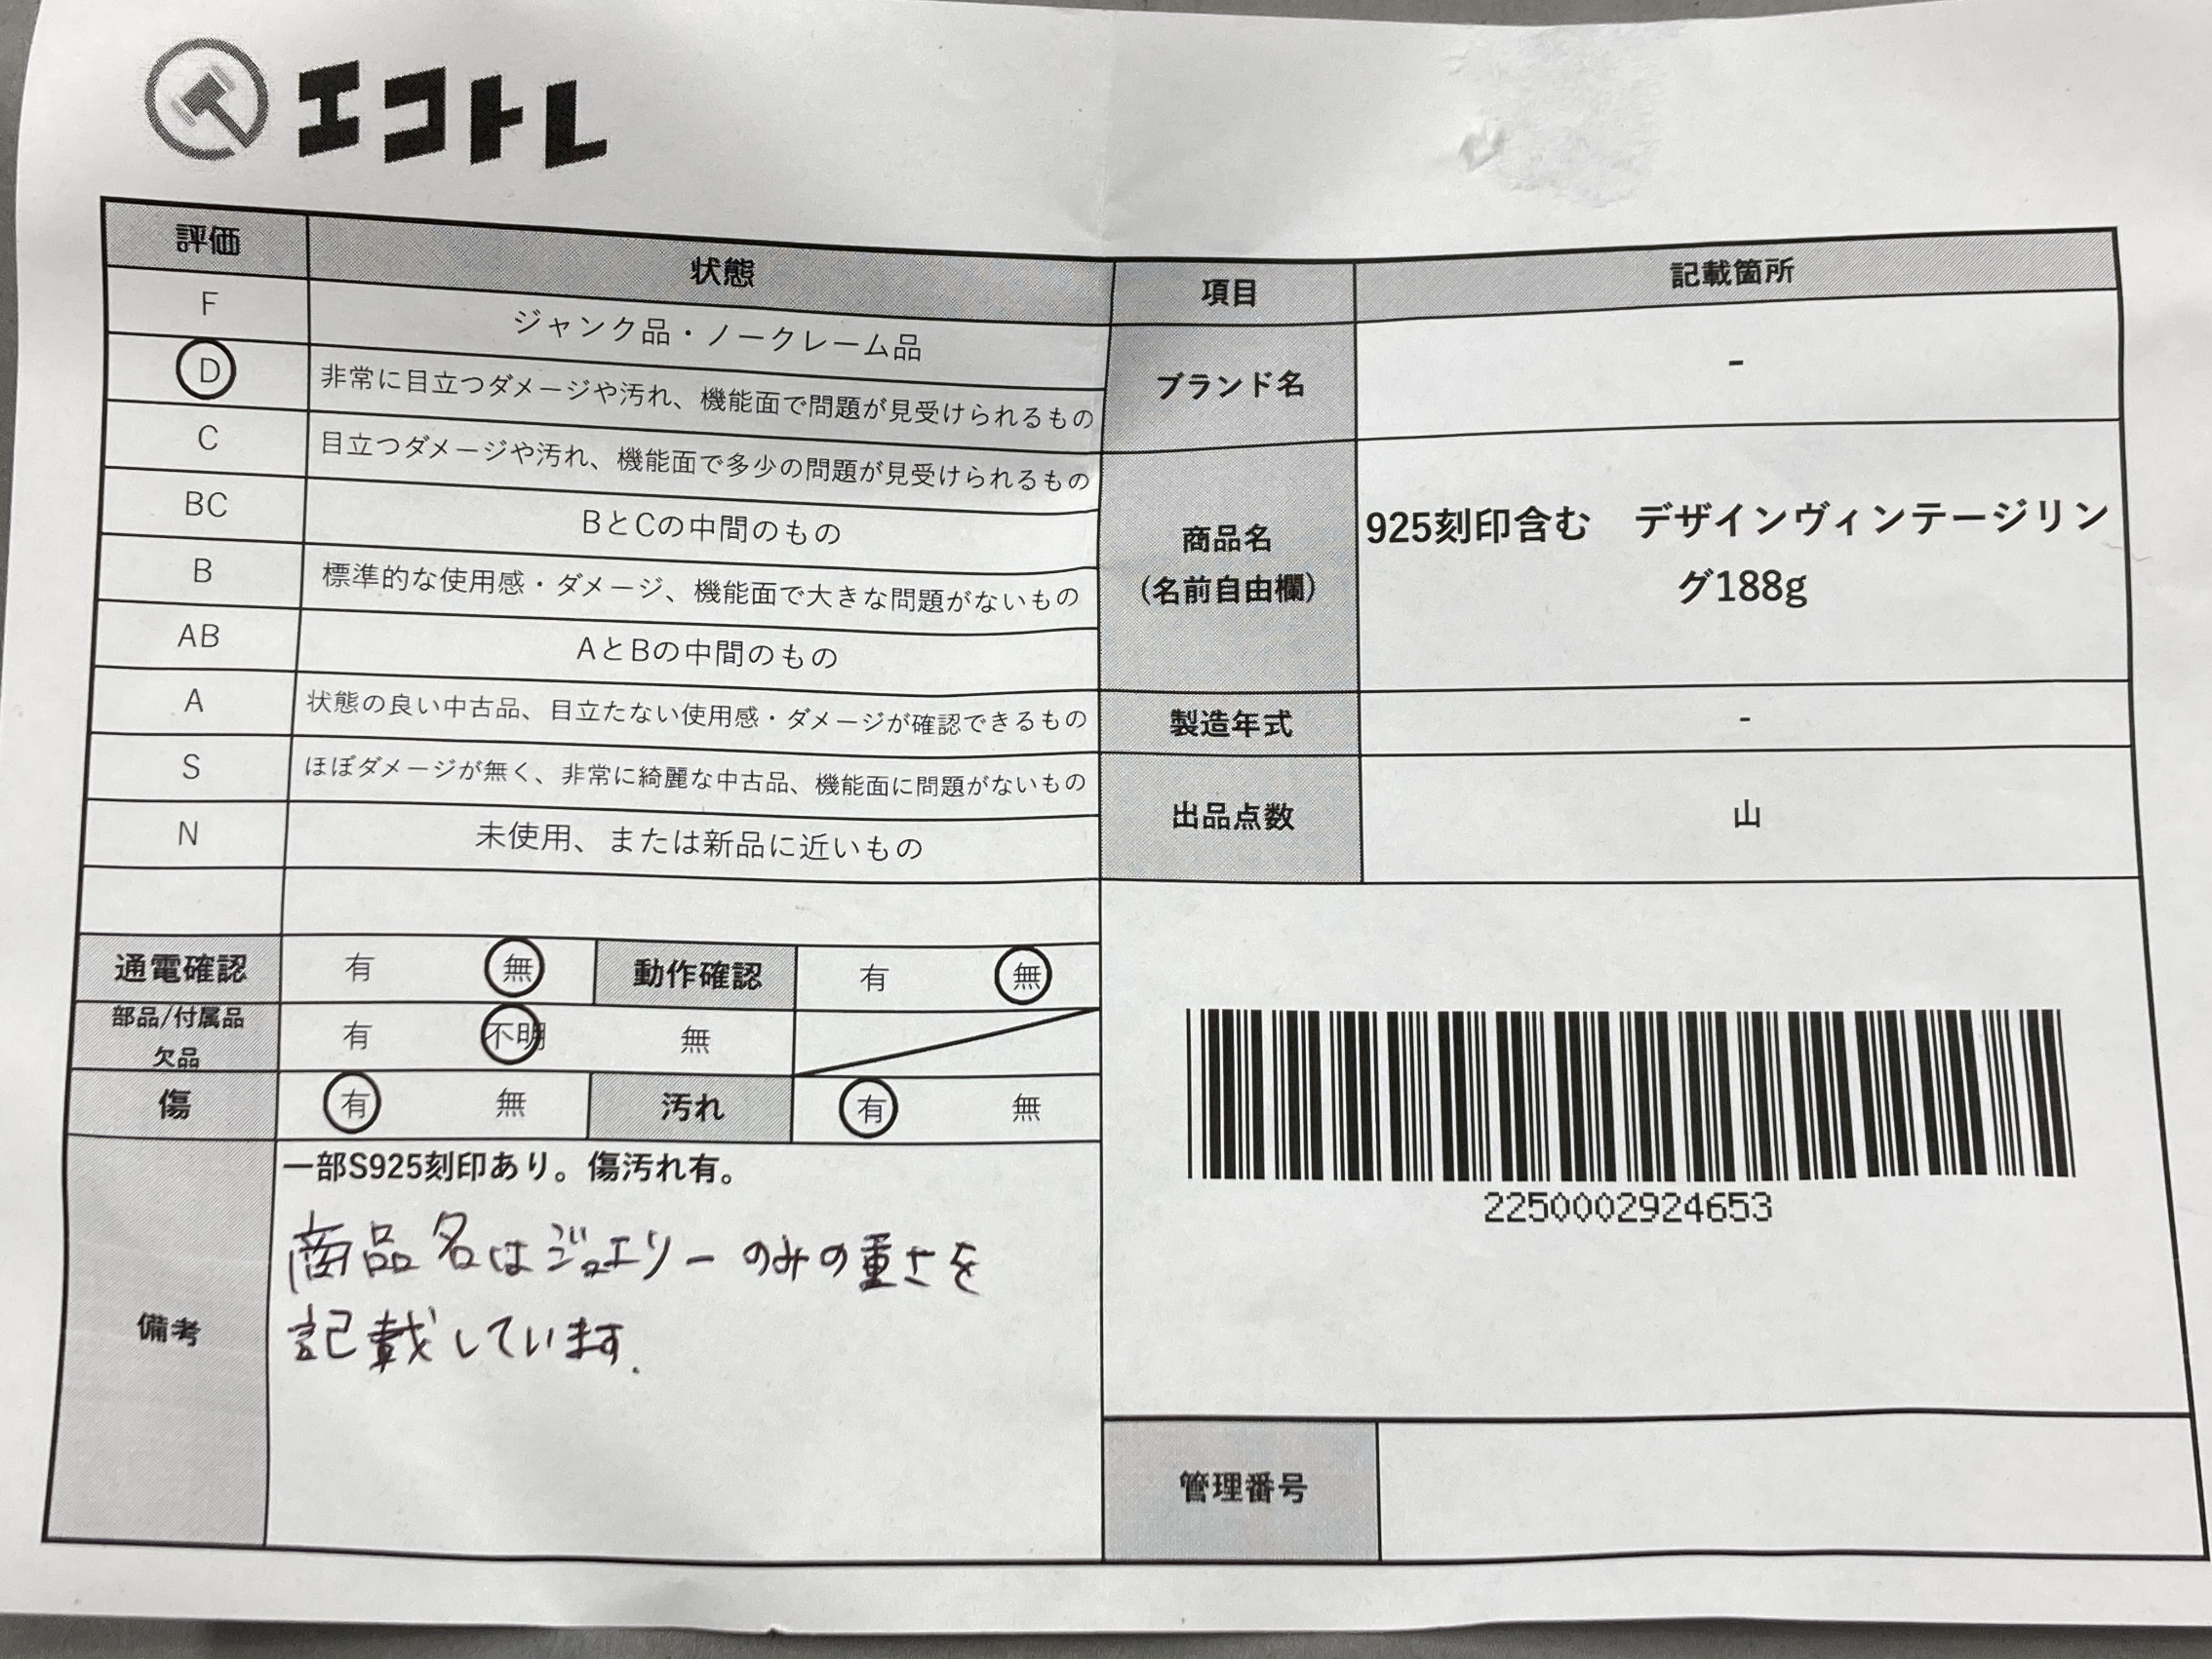 エコトレ
評価 状態
F ジャンク品・ノークレーム品
D 非常に目立つダメージや汚れ、機能面で問題が見受けられるもの
C 目立つダメージや汚れ、機能面で多少の問題が見受けられるもの
BC BとCの中間のもの
B 標準的な使用感・ダメージ、機能面で大きな問題がないもの
AB AとBの中間のもの
A 状態の良い中古品、目立たない使用感・ダメージが確認できるもの
S ほぼダメージが無く、非常に綺麗な中古品、機能面に問題がないもの
N 未使用、または新品に近いもの
通電確認 有 無 動作確認 有 無
部品/付属品
欠品 有 不明 無
傷 有 無 汚れ 有 無
備考
一部S925刻印あり。傷汚れ有。
商品名はジュエリーのみの重さを
記載しています.
項目 記載箇所
ブランド名 -
商品名
(名前自由欄)
925刻印含む　デザインヴィンテージリン
グ188g
製造年式 -
出品点数 山
2250002924653
管理番号